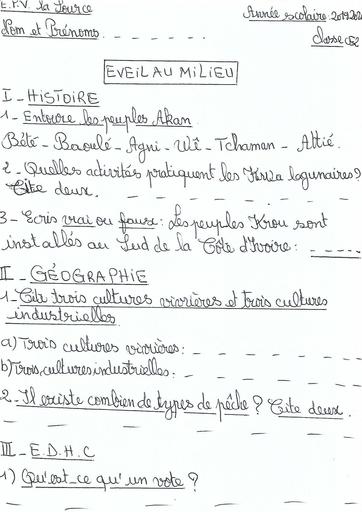 E.P.V. la Source
Année scolaire 2019
Nom et Prénoms
Classe CE2
EVEIL AU MILIEU
I - HISTOIRE
1 - Entoure les peuples Akan
Bété - Baoulé - Agni - Wê - Tchaman - Attié.
2 - Quelles activités pratiquent les lagunaires?
Cite deux.
3 - Ecris vrai ou faux : Les peuples Krou sont
installés au Sud de la Côte d'Ivoire :
II - GÉOGRAPHIE
1 - Cite trois cultures vivrières et trois cultures
industrielles.
a) Trois cultures vivrières :
b) Trois cultures industrielles :
2 - Il existe combien de types de pêche ? Cite deux.
III - E.D.H.C
1) Qu'est-ce qu'un vote ?